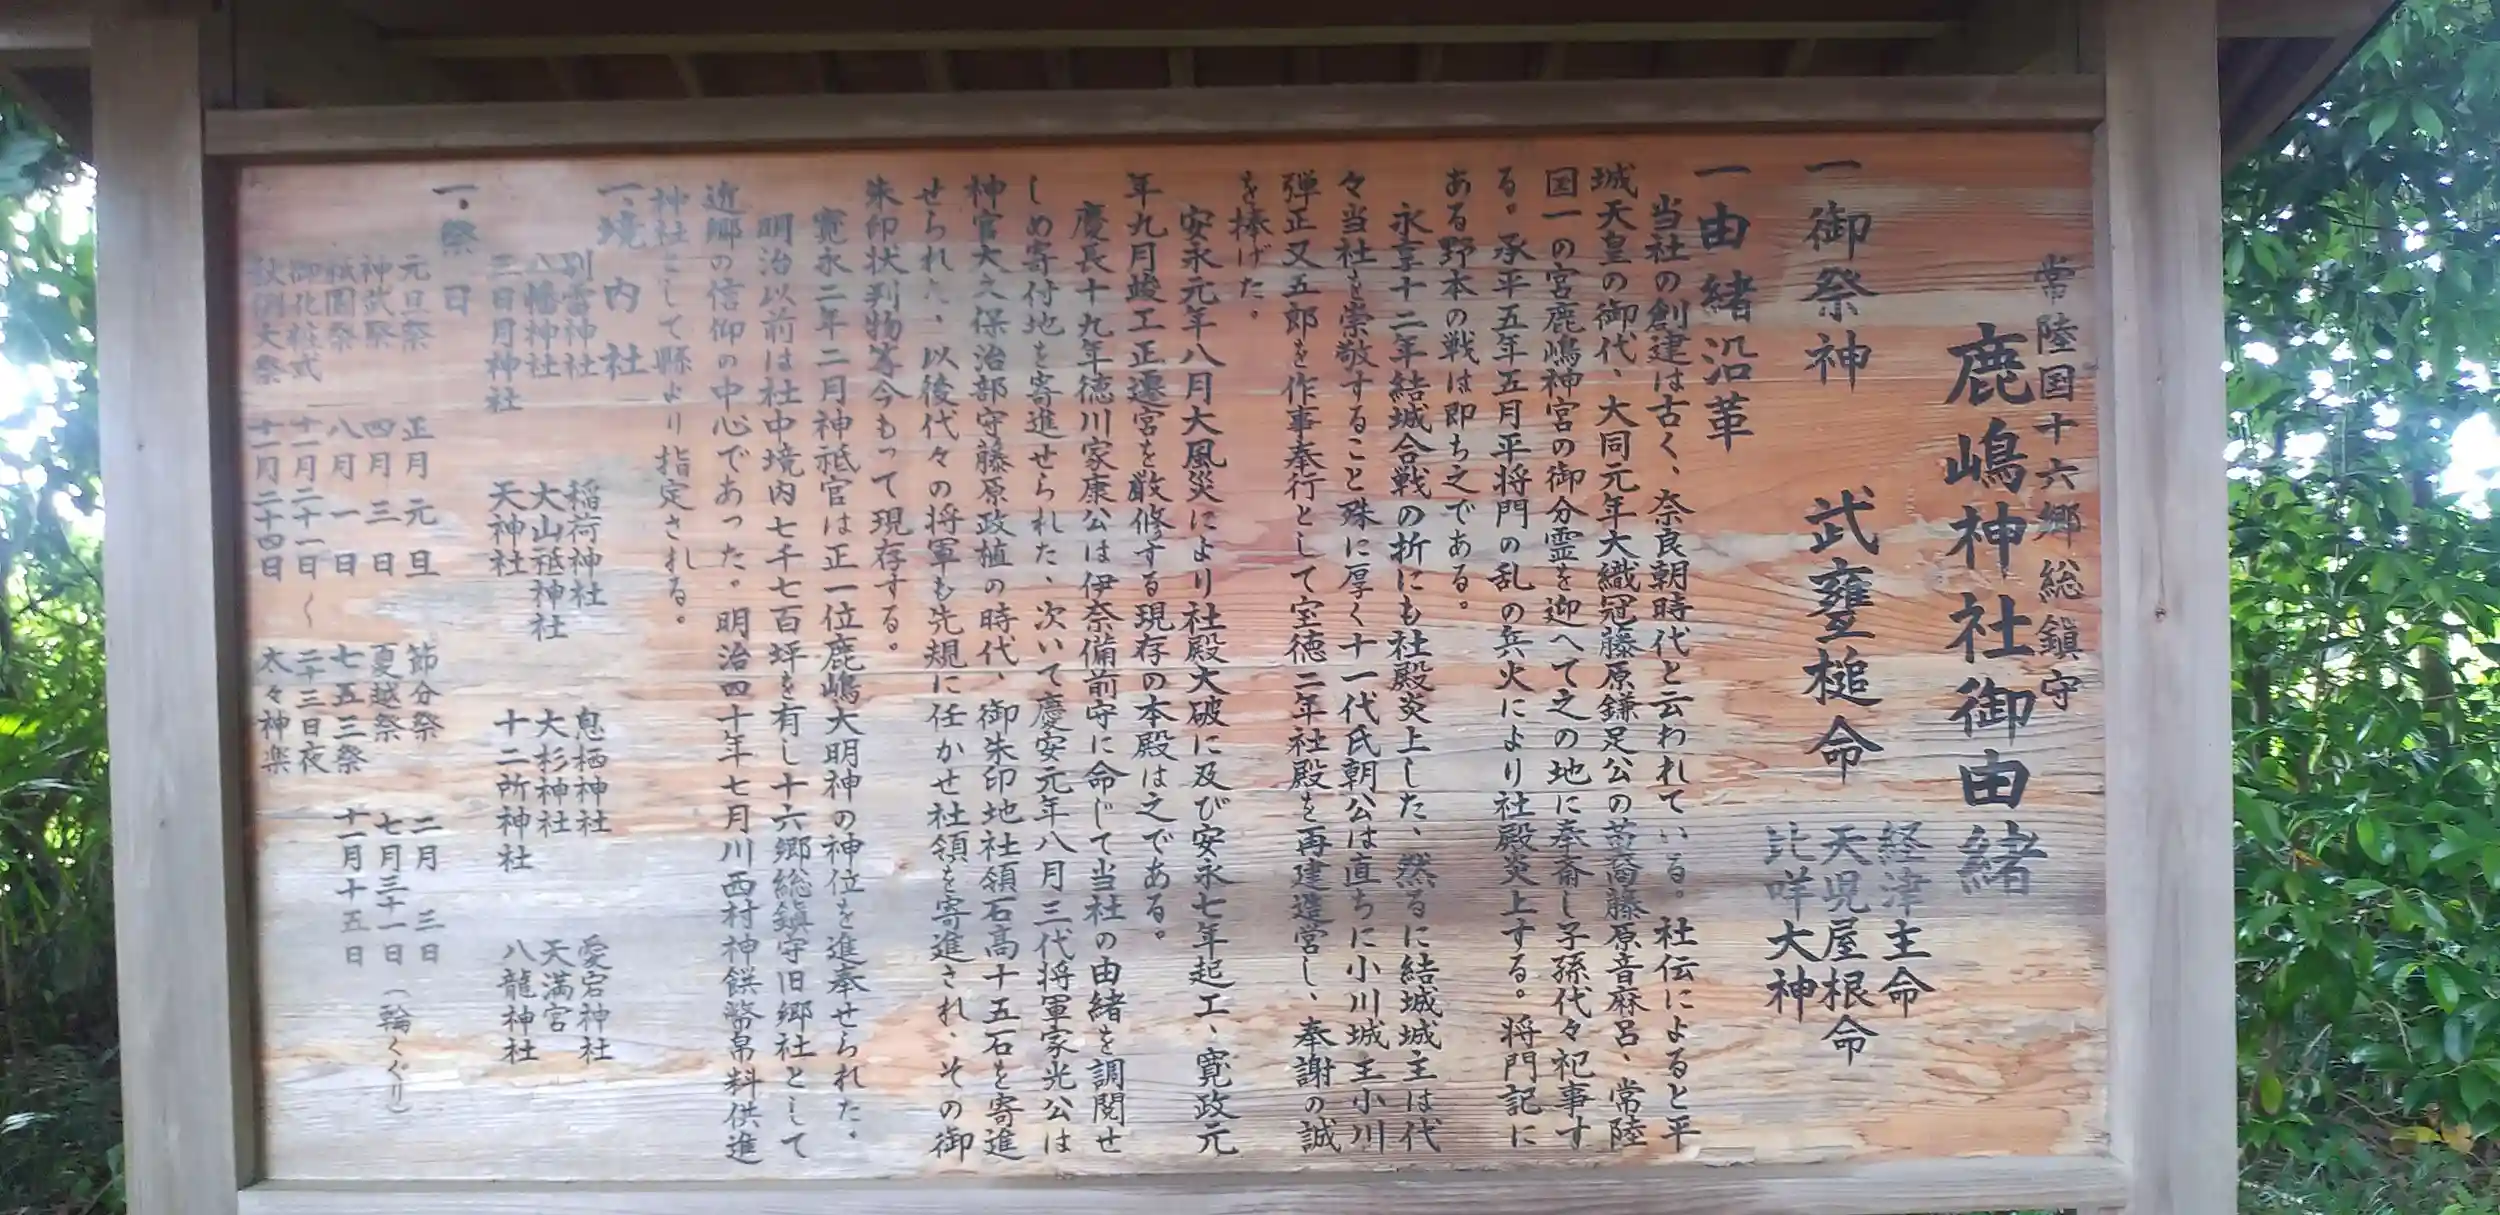 常陸国十六郷総鎮守
鹿嶋神社御由緒
一御祭神 武甕槌命
経津主命
天児屋根命
比咩大神
一由緒沿革
当社の創建は古く、奈良朝時代と云われている。社伝によると平
城天皇の御代、大同元年大織冠藤原鎌足公の苗裔藤原音麻呂、常陸
国一の宮鹿嶋神宮の御分霊を迎へて之の地に奉斎し子孫代々祀事す
る。承平五年五月平将門の乱の兵火により社殿炎上する。将門記に
ある野本の戦は即ち之である。
永享十二年結城合戦の折にも社殿炎上した、然るに結城城主は代
々当社を崇敬すること殊に厚く十一代氏朝公は直ちに小川城主小川
弾正又五郎を作事奉行として宝徳二年社殿を再建造営し、奉謝の誠
を捧げた。
安永元年八月大風災により社殿大破に及び安永七年起工、寛政元
年九月竣工正遷宮を厳修する現存の本殿は之である。
慶長十九年徳川家康公は伊奈備前守に命じて当社の由緒を調閲せ
しめ寄付地を寄進せられた、次いで慶安元年八月三代将軍家光公は
神官大久保治部守藤原政植の時代、御朱印地社領石高十五石を寄進
せられた、以後代々の将軍も先規に任かせ社領を寄進され、その御
朱印状判物等今もって現存する。
寛永二年二月神祗官は正一位鹿嶋大明神の神位を進奉せられた。
明治以前は社中境内七千七百坪を有し十六郷総鎮守旧郷社として
近郷の信仰の中心であった。明治四十年七月川西村神饌幣帛料供進
神社として縣より指定される。
一、境内社
別雷神社 稲荷神社 息栖神社 愛宕神社
八幡神社 大山祗神社 大杉神社 天満宮
三日月神社 天神社 十二所神社 八龍神社
一、祭日
元旦祭 正月元旦 節分祭 二月三日
神武祭 四月三日 夏越祭 七月三十一日（輪くぐり）
祗園祭 八月一日 七五三祭 十一月十五日
御化粧式 十一月二十一日〜二十三日夜
秋例大祭 十一月二十四日 太々神楽